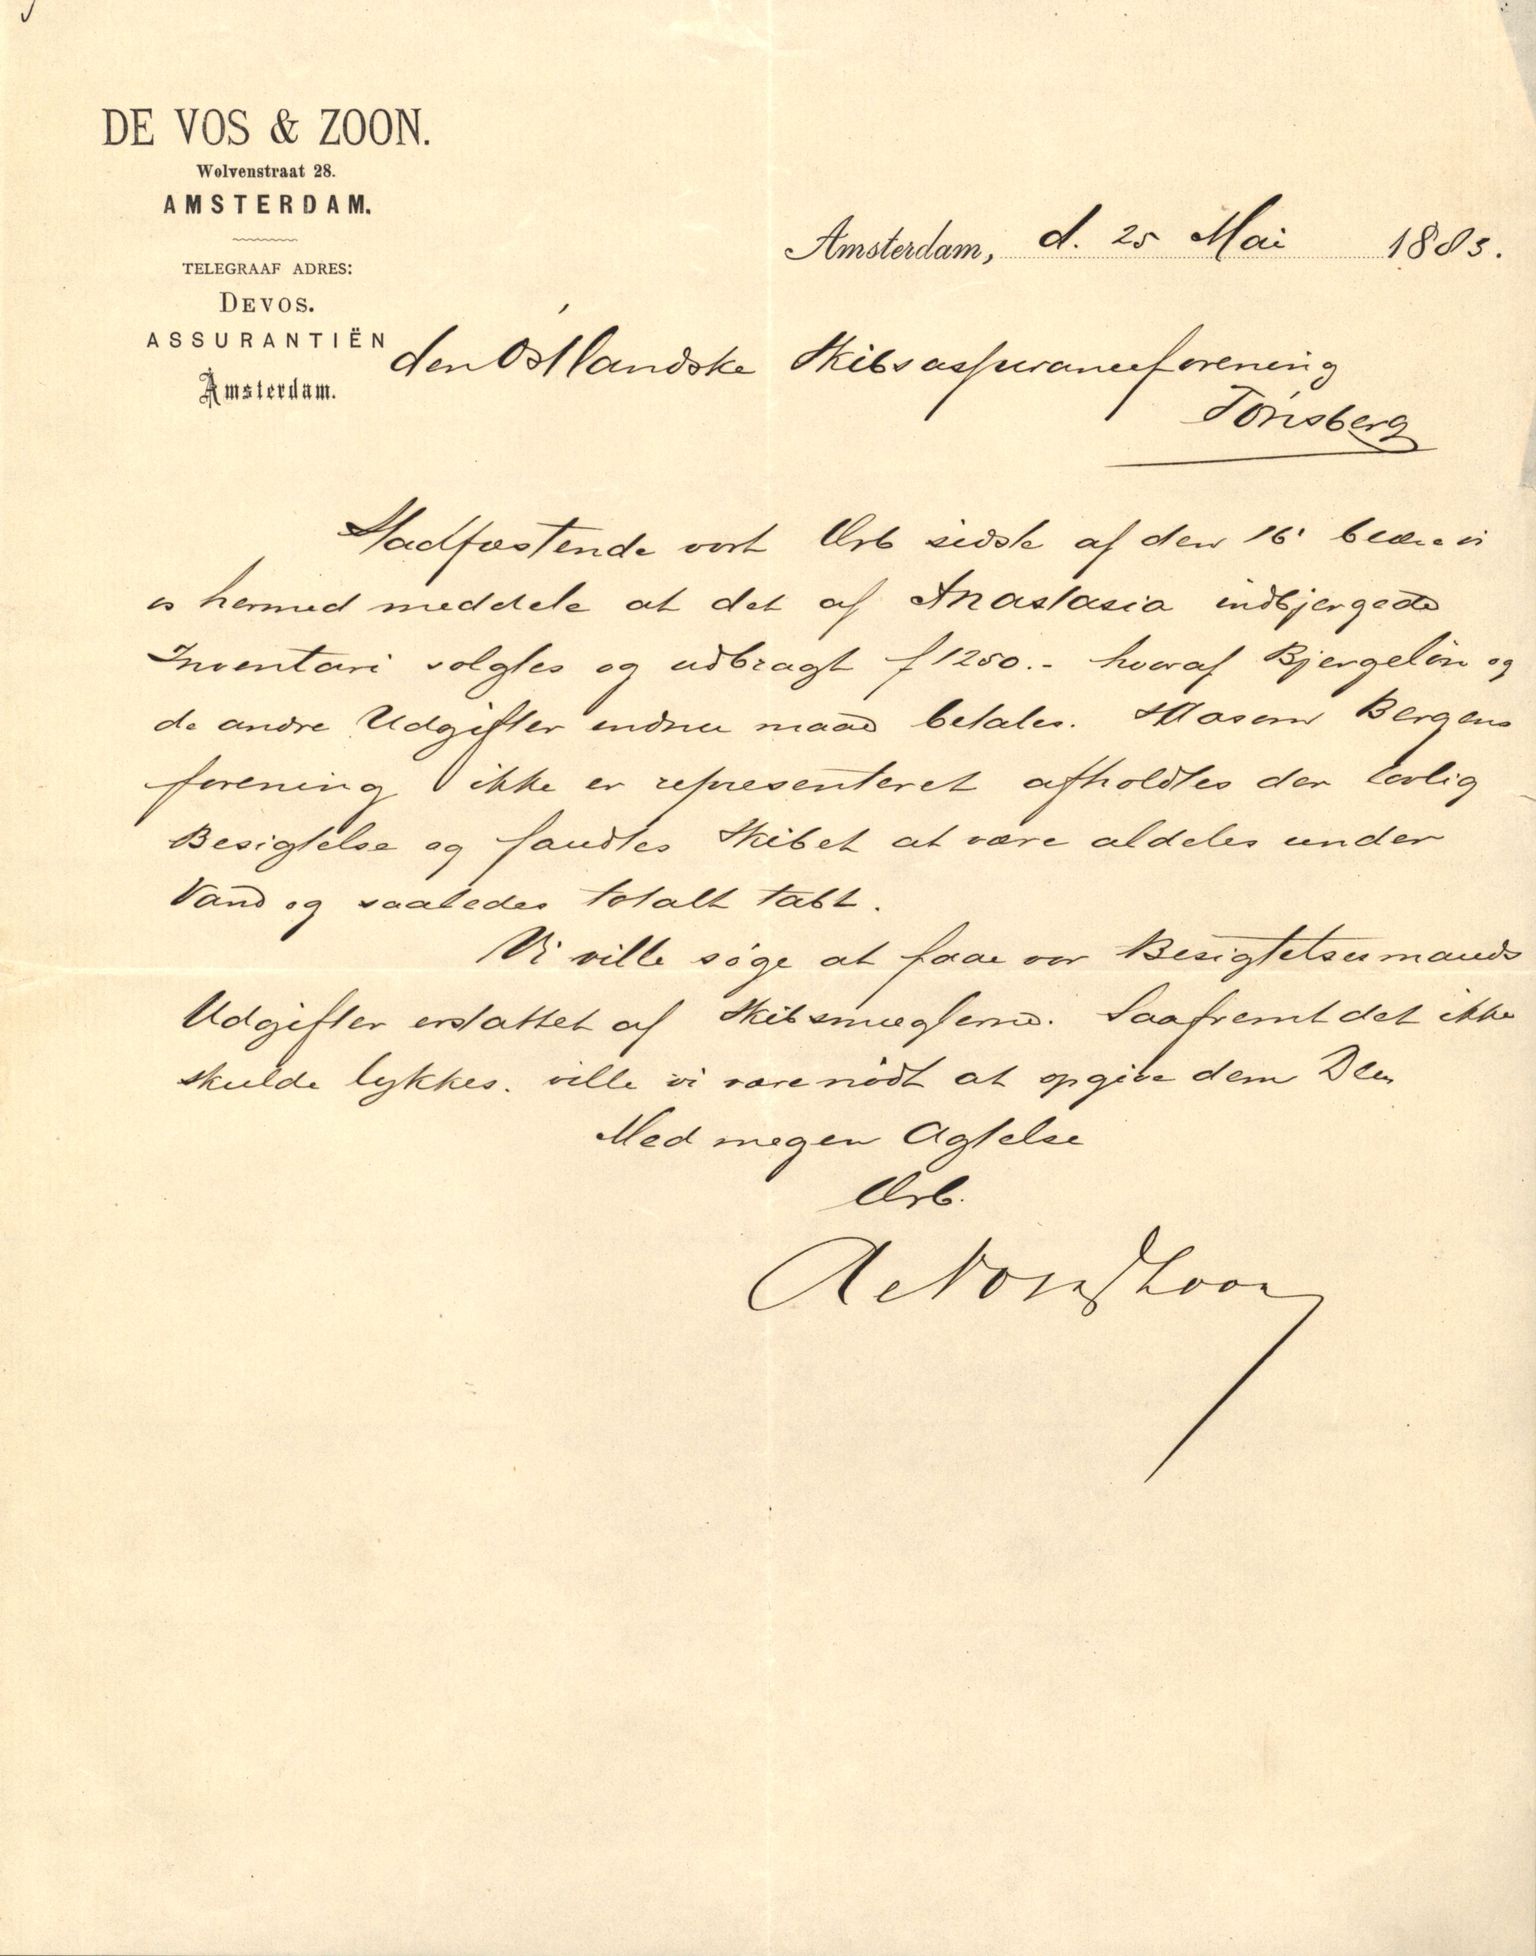 DE VOS & ZOON.
Wolvenstraat 28.
AMSTERDAM.
TELEGRAAF ADRES:
DEVOS.
ASSURANTIËN
Amsterdam.
Amsterdam, d. 25 Mai 1883.
den Östlandske Skibsassuranceforening
Tönsberg
Stadfæstende vort Erb sidste af den 16' beære vi
os hermed meddele at det af Anastasia indbjergede
Inventari solgtes og udbragt f 1250.- hvoraf Bjergelön og
de andre Udgifter endnu maae betales. Bergens
forening ikke er repræsenteret afholdtes der lovlig
Besigtelse og fandtes Skibet at være aldeles under
Vand og saaledes totalt tabt.
Vi ville söge at faae vor Besigtelsesmands
Udgifter erstattet af Skibsmæglerne. Saafremt det ikke
skulde lykkes. ville vi være nödt at opgive dem Dem
Med megen Agtelse
Erb.
de Vos & Zoon